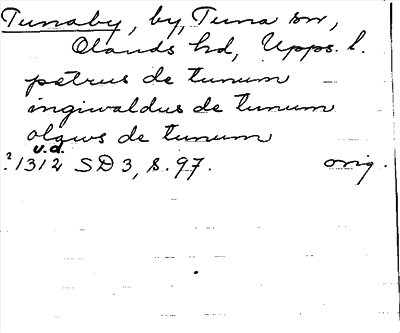 Tunaby, by, Tuna sn,
Olands hd, Upps. l.
petrus de tunum
ingiwaldus de tunum
olgws de tunum
u.d.
?1312 SD 3, s. 97. orig.